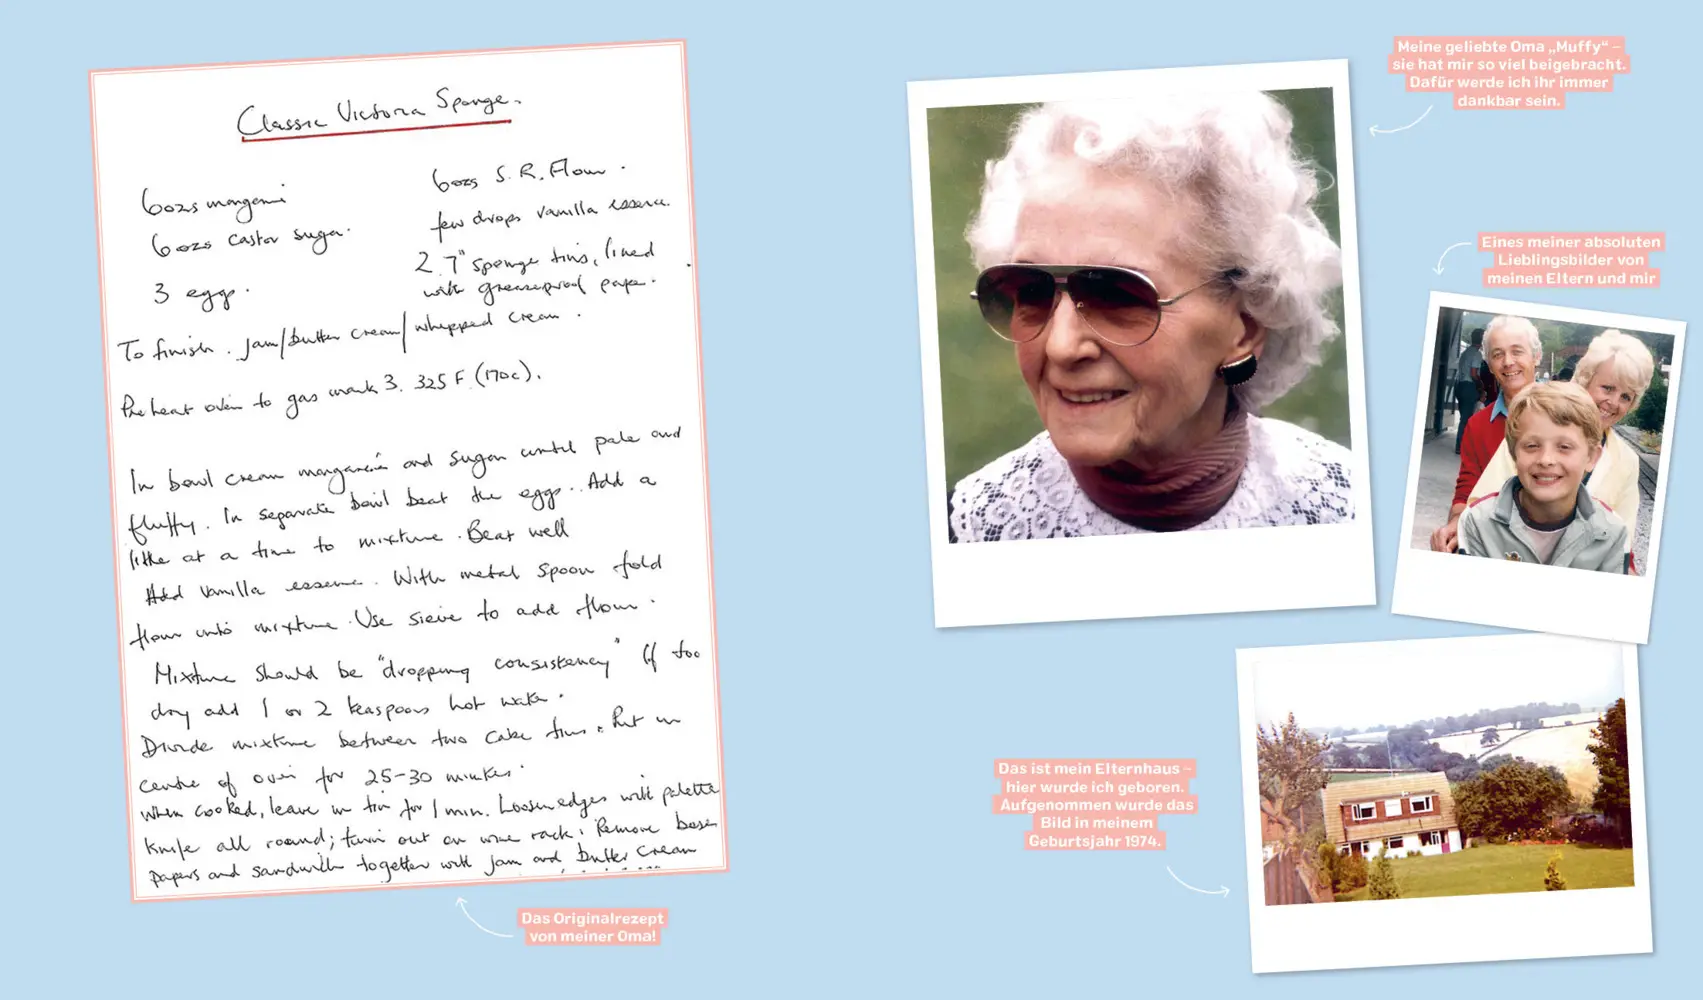 Classic Victoria Sponge.
6ozs margarine
6ozs castor sugar.
3 eggs.
6ozs S. R. Flour.
few drops vanilla essence.
2 7" sponge tins, lined
with greaseproof paper.
To finish. jam/butter cream/whipped cream.
Pre heat oven to gas mark 3. 325 F. (170c).
In bowl cream margarine and sugar until pale and
fluffy. In separate bowl beat the eggs. Add a
little at a time to mixture. Beat well
Add vanilla essence. With metal spoon fold
flour into mixture. Use sieve to add flour.
Mixture should be "dropping consistency" If too
dry add 1 or 2 teaspoons hot water.
Divide mixture between two cake tins. Put in
centre of oven for 25-30 minutes.
When cooked, leave in tin for 1 min. Loosen edges with palette
knife all round; turn out on wire rack. Remove base
papers and sandwich together with jam and butter cream
Das Originalrezept
von meiner Oma!
Meine geliebte Oma „Muffy“ –
sie hat mir so viel beigebracht.
Dafür werde ich ihr immer
dankbar sein.
Eines meiner absoluten
Lieblingsbilder von
meinen Eltern und mir
Das ist mein Elternhaus –
hier wurde ich geboren.
Aufgenommen wurde das
Bild in meinem
Geburtsjahr 1974.